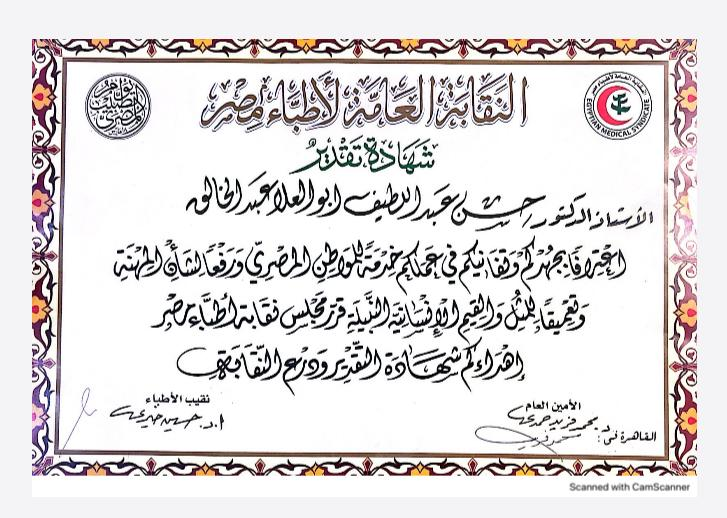 النقابة العامة لأطباء مصر
EGYPTIAN MEDICAL SYNDICATE
شهادة تقدير
الأستاذ الدكتور/ حسن عبد اللطيف ابو العلا عبد الخالق
اعترافًا بجهدكم وتفانيكم في عملكم خدمة للمواطن المصري ورفعًا لشأن المهنة
وتعميقًا للمثل والقيم الإنسانية النبيلة قرر مجلس نقابة أطباء مصر
إهداءكم شهادة التقدير ودرع النقابة
الأمين العام
نقيب الأطباء
د. محمد فريد حمدي
أ.د. حسين خيري
القاهرة في:
Scanned with CamScanner